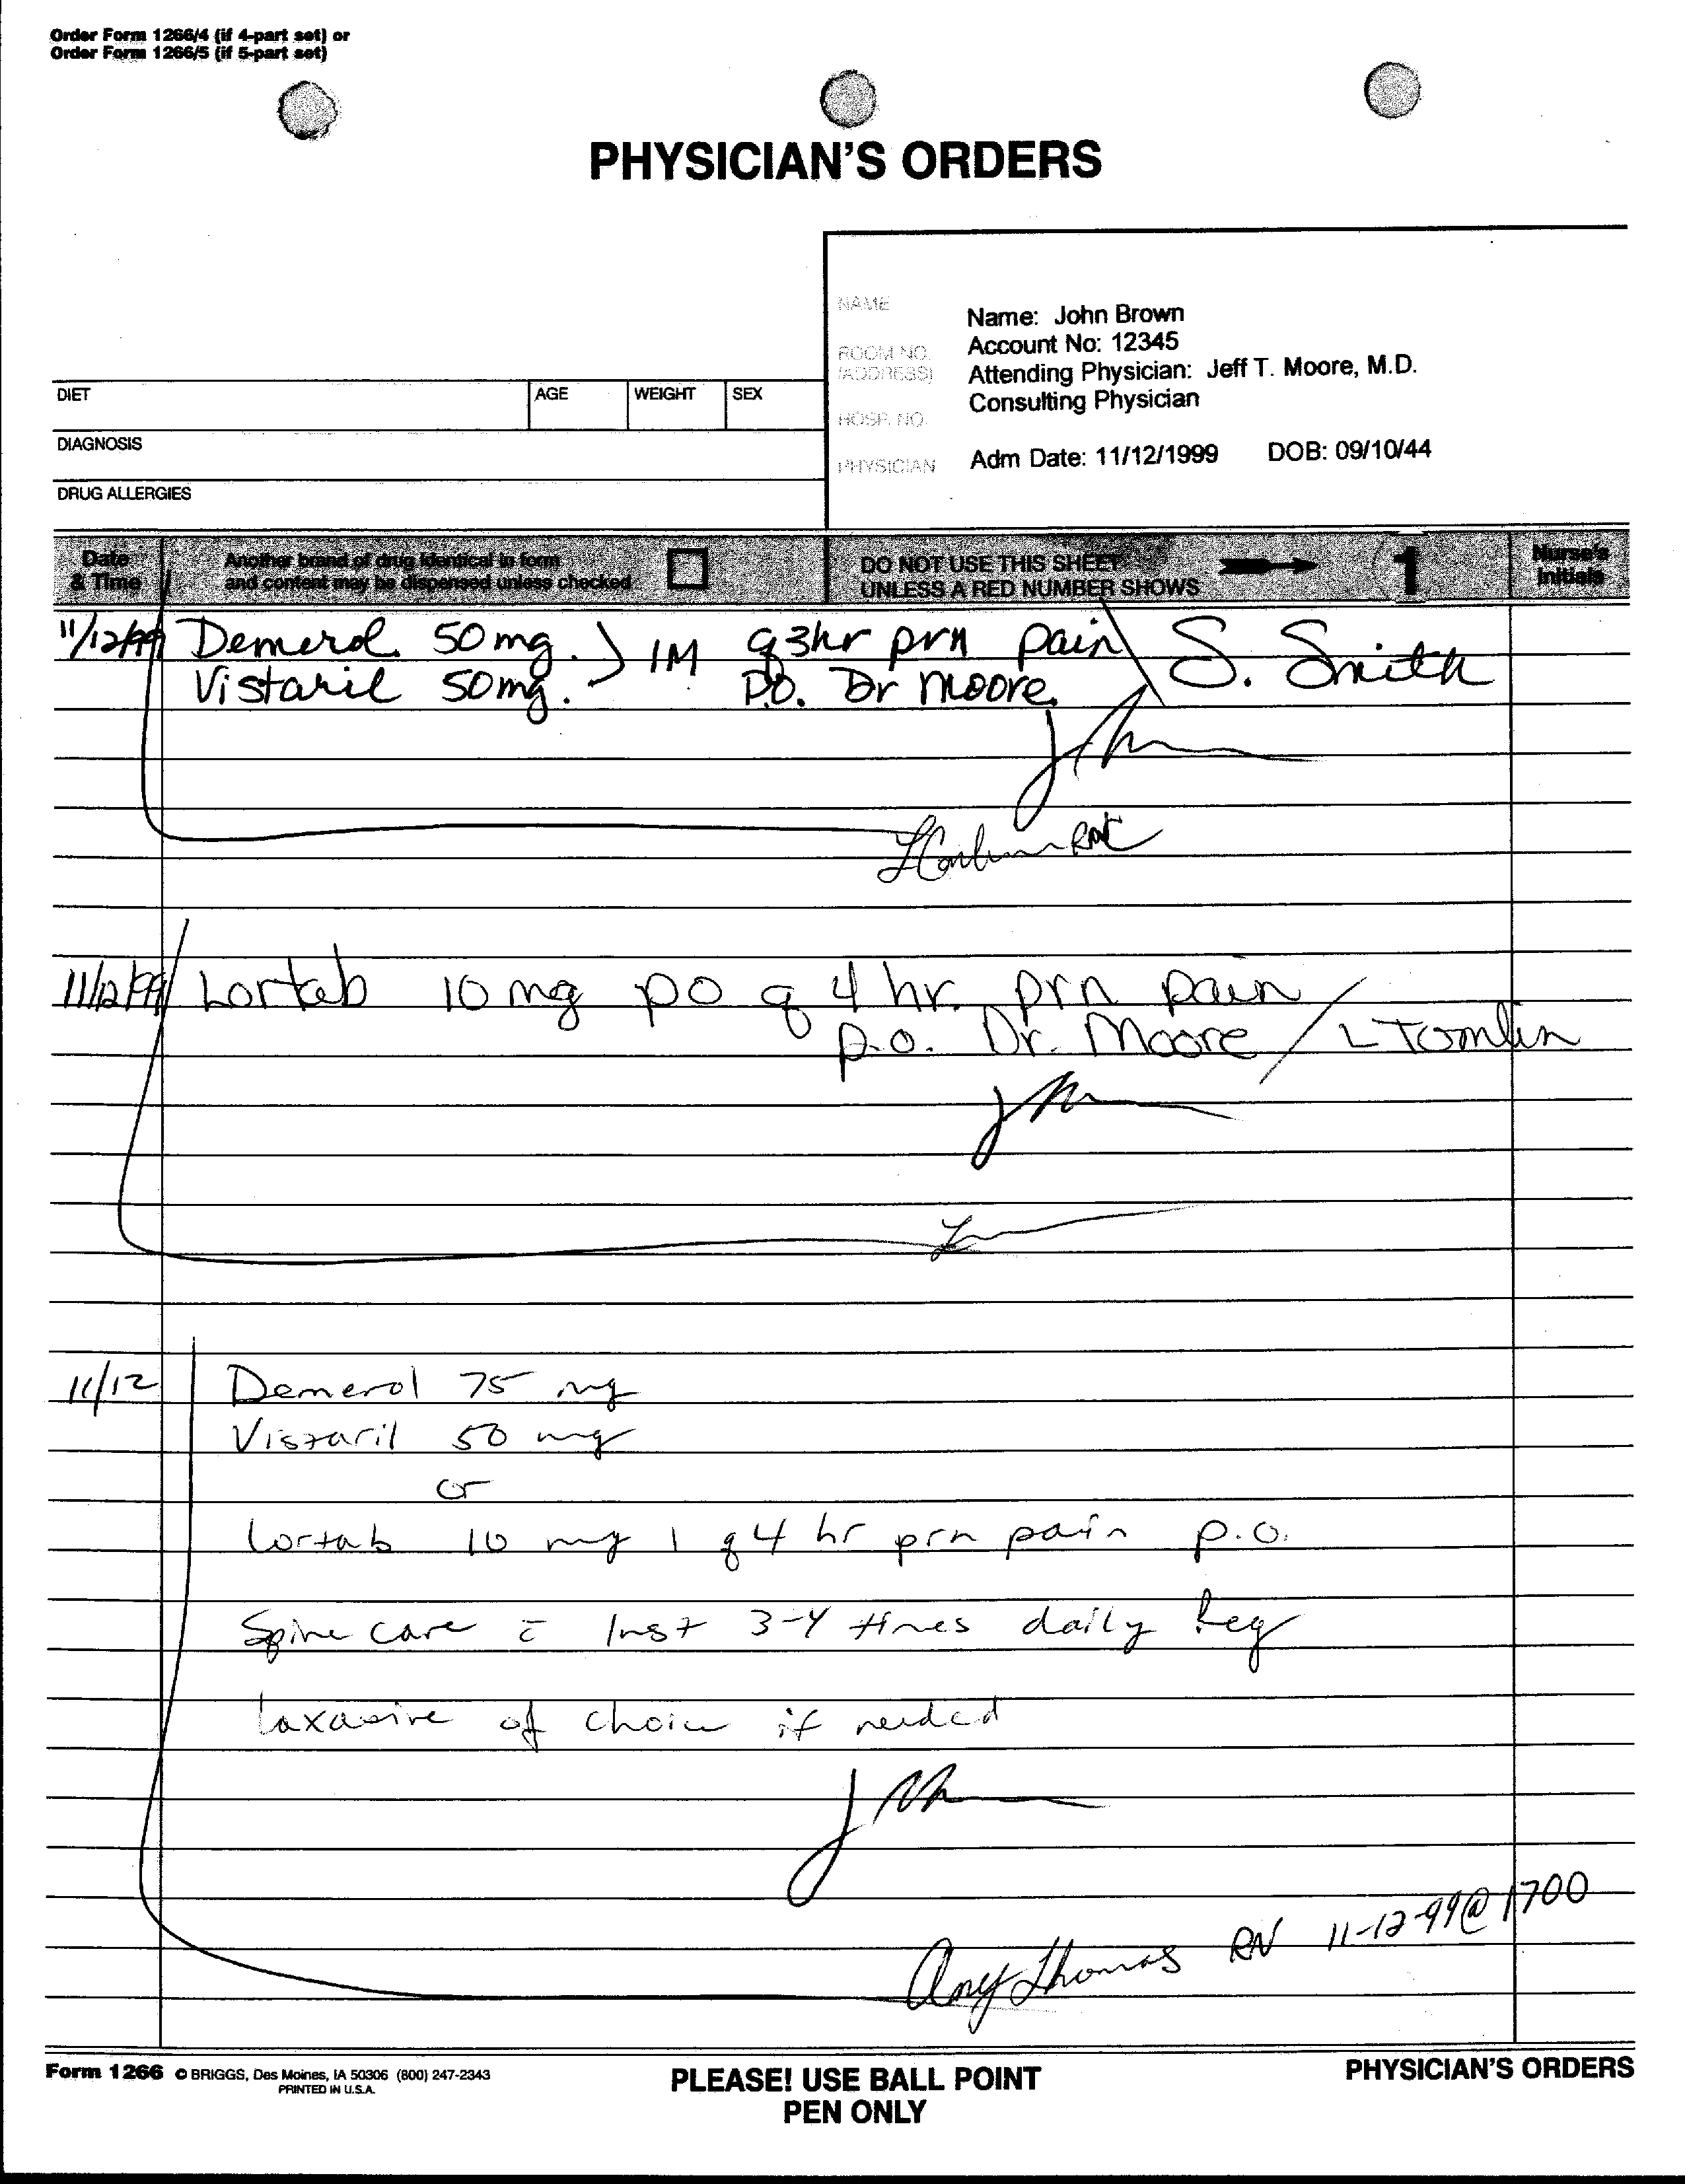 Order Form 1266/4 (if 4-part set) or
Order Form 1266/5 (if 5-part set)
PHYSICIAN'S ORDERS
NAME
Name: John Brown
ROOM NO.
Account No: 12345
(ADDRESS)
Attending Physician: Jeff T. Moore, M.D.
DIET AGE WEIGHT SEX
HOSP. NO.
Consulting Physician
DIAGNOSIS
PHYSICIAN
Adm Date: 11/12/1999 DOB: 09/10/44
DRUG ALLERGIES
Date
& Time
Another brand of drug identical in form
and content may be dispensed unless checked
DO NOT USE THIS SHEET
UNLESS A RED NUMBER SHOWS
1
Nurse's
Initials
11/12/99 Demerol 50 mg. } IM q3hr prn pain \ S. Smith
Vistaril 50mg. P.O. Dr Moore
11/12/99 Lortab 10 mg po q 4 hr. prn pain
p.o. Dr. Moore / L Tomlin
11/12 Demerol 75 mg
Vistaril 50 mg
or
Lortab 10 mg 1 q4 hr prn pain p.o.
Spine care c̄ Inst 3-4 times daily Reg
Laxative of choice if needed
Amy Thomas RN 11-12-99@1700
Form 1266 © BRIGGS, Des Moines, IA 50306 (800) 247-2343
PRINTED IN U.S.A.
PLEASE! USE BALL POINT
PEN ONLY
PHYSICIAN'S ORDERS